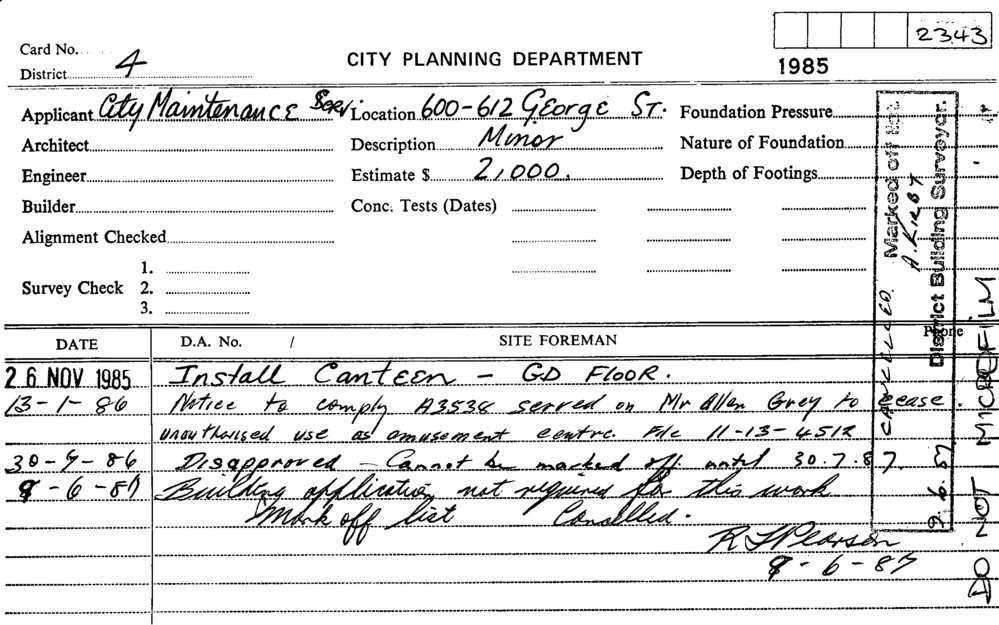 2343
Card No.
CITY PLANNING DEPARTMENT
District 4
1985
Applicant City Maintenance Serv. Location 600-612 George St. Foundation Pressure
Architect Description Minor Nature of Foundation
Engineer Estimate $ 2,000. Depth of Footings
Builder Conc. Tests (Dates)
Alignment Checked
1.
Survey Check 2.
3.
Phone
DATE D.A. No. / SITE FOREMAN
26 NOV 1985 Install Canteen - GD FLOOR.
13-1-86 Notice to comply A3538 served on Mr Allen Grey to cease
unauthorised use as amusement centre. File 11-13-4512
30-7-86 Disapproved - Cannot be marked off until 30.7.87.
9-6-87 Building application not required for this work
Mark off list Cancelled.
R Pearson
9-6-87
CANCELLED. Marked off list
A. KIRBY
9.6.87. District Building Surveyor.
DO NOT MICROFILM